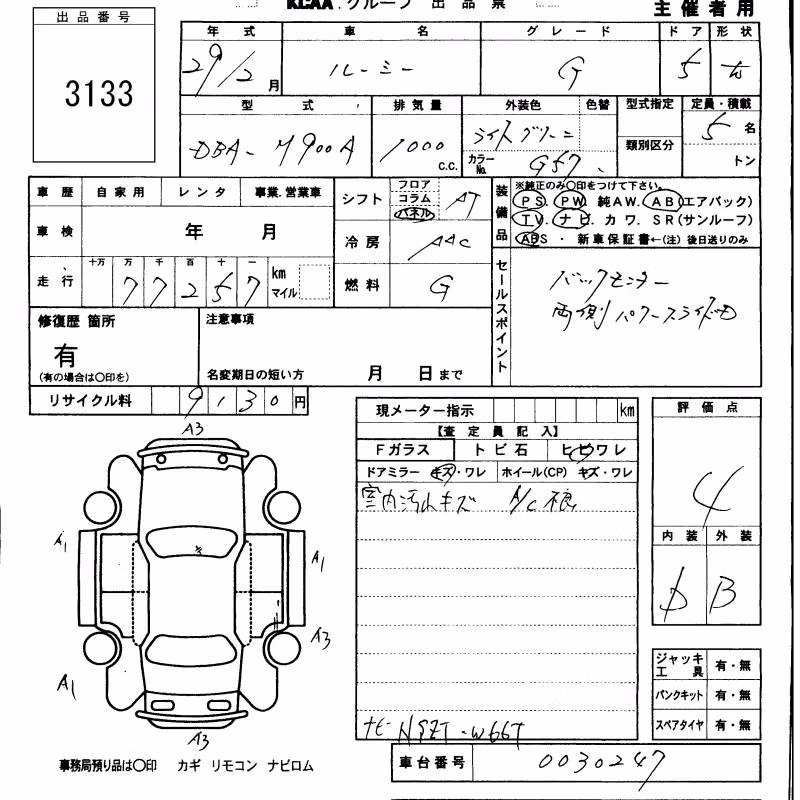 KCAA.グループ 出品票
主催者用
出品番号
3133
年式 車名 グレード ドア 形状
29/2月 ルーミー G 5
型式 排気量 外装色 色替 型式指定 定員・積載
DBA-M900A 1000 c.c. ライトグリーン 類別区分 5名
カラーNo. G57 トン
車歴 自家用 レンタ 事業.営業車
シフト フロア コラム パネル AT
装備品 ※純正のみ〇印をつけて下さい。
PS. PW. 純AW. AB(エアバック)
TV. ナビ. カワ. SR(サンルーフ)
ABS・新車保証書←(注)後日送りのみ
車検 年 月
冷房 AAC
走行 十万 万 千 百 十 一 km マイル
77257
燃料 G
セールスポイント
バックモニター
両側パワースライド
修復歴 箇所
有
(有の場合は〇印を)
注意事項
名変期日の短い方 月 日まで
リサイクル料 9130円
現メーター指示 km
【査定員記入】
Fガラス トビ石 ヒビワレ
ドアミラー キズ・ワレ ホイール(CP) キズ・ワレ
室内汚れキズ A/C不良
ナビ NSZT-W66T
評価点
4
内装 外装
B
A3
A1
A1
A3
A1
A3
ジャッキ工具 有・無
パンクキット 有・無
スペアタイヤ 有・無
事務局預り品は〇印 カギ リモコン ナビロム
車台番号 0030247